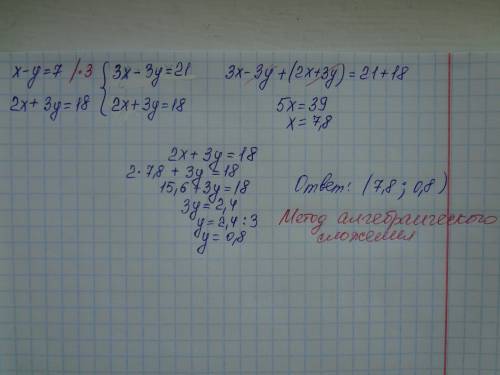 x-y=7 /·3 { 3x-3y=21 3x-3y+(2x+3y)=21+18
2x+3y=18 { 2x+3y=18 5x=39
x=7,8
2x+3y=18
2·7,8+3y=18
15,6+3y=18
3y=2,4
y=2,4:3
y=0,8
Ответ: (7,8; 0,8)
Метод алгебраического
сложения